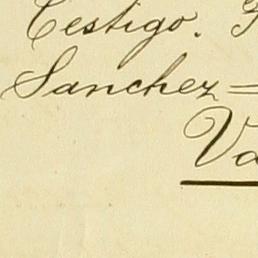 Testigo.
Sanchez=
Va